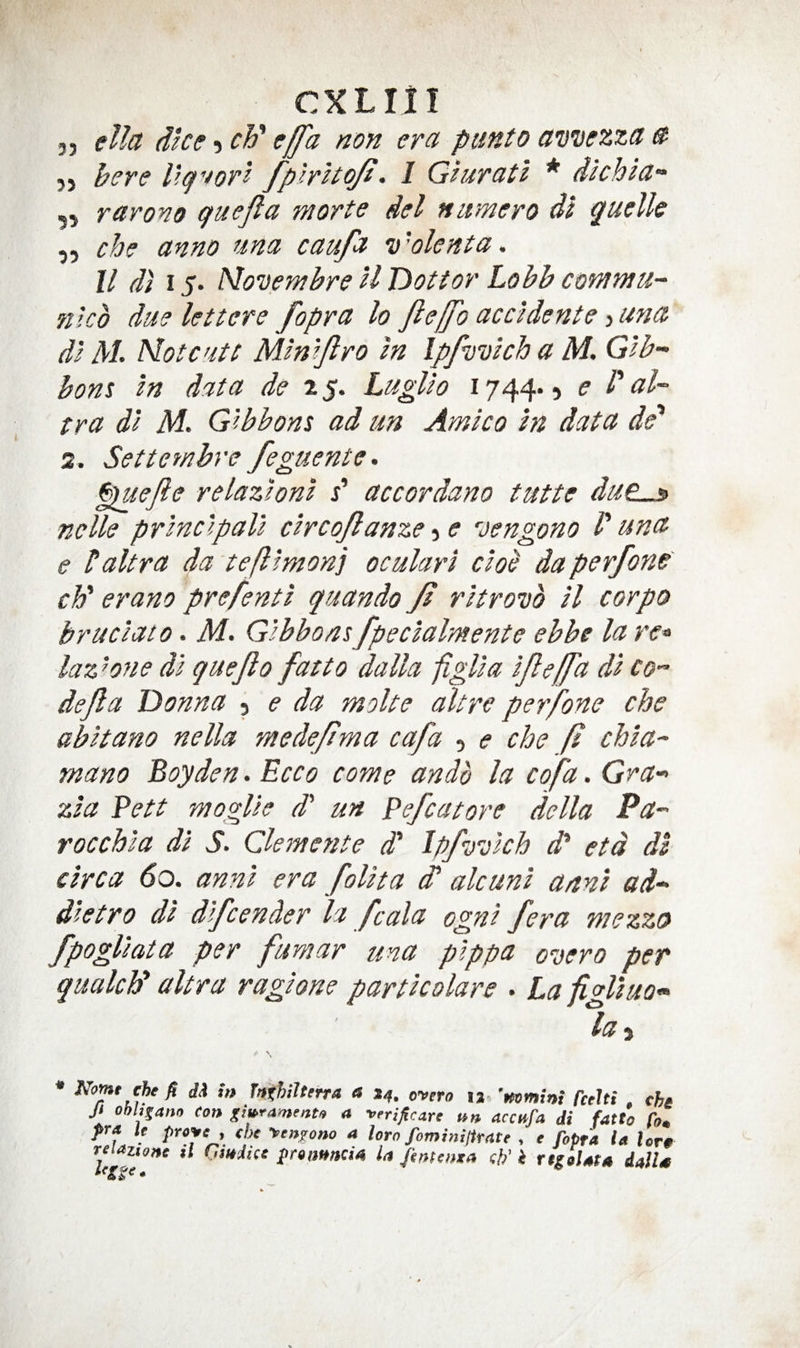 CXLIII
„ ella dice, ch' eſſa non era punto avvezza a
„ bere liquori ſpiritoſi. I Giurati * dichia-
„ rarono queſta morte del numero di quelle
„ che anno una cauſa violenta.
Il dì 15. Novembre il Dottor Lobb commu-
nicò due lettere ſopra lo ſteſſo accidente, una
di M. Notcutt Miniſtro in Ipſvvich a M. Gib-
bons in data de 25. Luglio 1744., e l' al-
tra di M. Gibbons ad un Amico in data de'
2. Settembre ſeguente.
Queſte relazioni s' accordano tutte due
nelle principali circoſtanze, e vengono l' una
e l'altra da teſtimonj oculari cioè da perſone
ch' erano preſenti quando ſi ritrovò il corpo
bruciato. M. Gibbons ſpecialmente ebbe la re-
lazione di queſto fatto dalla figlia iſteſſa di co-
deſta Donna, e da molte altre perſone che
abitano nella medeſima caſa, e che ſi chia-
mano Boyden. Ecco come andò la coſa. Gra-
zia Pett moglie d' un Peſcatore della Pa-
rocchia di S. Clemente d' Ipſvvich d' età di
circa 60. anni era ſolita d' alcuni anni ad-
dietro di diſcender la ſcala ogni ſera mezzo
ſpogliata per fumar una pippa overo per
qualch' altra ragione particolare. La figliuo-
la,
* Nome che ſi dà in Inghilterra a 24. overo 12 uomini ſcelti, che
ſi obligano con giuramento a verificare un accuſa di fatto ſo-
pra le prove, che vengono a loro ſominiſtrate, e ſopra la loro
relazione il Giudice pronuncia la ſentenza ch' è regolata dalla
legge.